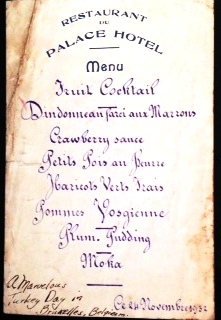 RESTAURANT
DU
PALACE HOTEL
Menu
Fruit Cocktail
Dindonneau Farci aux Marrons
Crawberry sauce
Petits Pois au Beurre
Haricots Verts Frais
Pommes Vosgienne
Plum Pudding
Moka
Ce 24 Novembre 1932
A Marvelous
Turkey Day in
Bruxelles, Belgium.